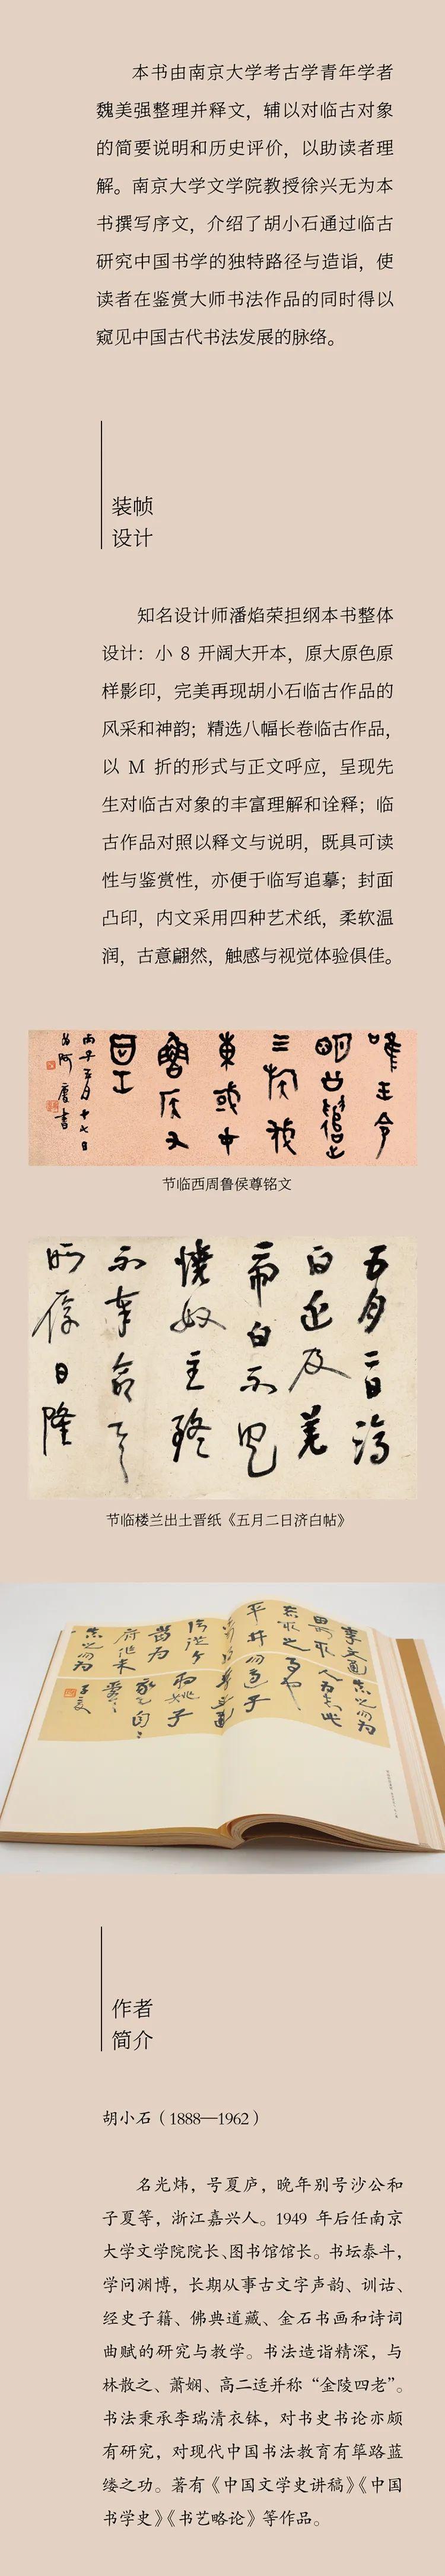 本书由南京大学考古学青年学者
魏美强整理并释文，辅以对临古对象
的简要说明和历史评价，以助读者理
解。南京大学文学院教授徐兴无为本
书撰写序文，介绍了胡小石通过临古
研究中国书学的独特路径与造诣，使
读者在鉴赏大师书法作品的同时得以
窥见中国古代书法发展的脉络。
装帧
设计
知名设计师潘焰荣担纲本书整体
设计：小 8 开阔大开本，原大原色原
样影印，完美再现胡小石临古作品的
风采和神韵；精选八幅长卷临古作品，
以 M 折的形式与正文呼应，呈现先
生对临古对象的丰富理解和诠释；临
古作品对照以释文与说明，既具可读
性与鉴赏性，亦便于临写追摹；封面
凸印，内文采用四种艺术纸，柔软温
润，古意翩然，触感与视觉体验俱佳。
唯王令
明公
三族
東或
工
丙子五月十七日
节临西周鲁侯尊铭文
五月二日濟
白近及羌
帝白不
憹奴主
不幸命
所存日隆
节临楼兰出土晋纸《五月二日济白帖》
作者
简介
胡小石（1888—1962）
名光炜，号夏庐，晚年别号沙公和
子夏等，浙江嘉兴人。1949 年后任南京
大学文学院院长、图书馆馆长。书坛泰斗，
学问渊博，长期从事古文字声韵、训诂、
经史子籍、佛典道藏、金石书画和诗词
曲赋的研究与教学。书法造诣精深，与
林散之、萧娴、高二适并称“金陵四老”。
书法秉承李瑞清衣钵，对书史书论亦颇
有研究，对现代中国书法教育有筚路蓝
缕之功。著有《中国文学史讲稿》《中国
书学史》《书艺略论》等作品。